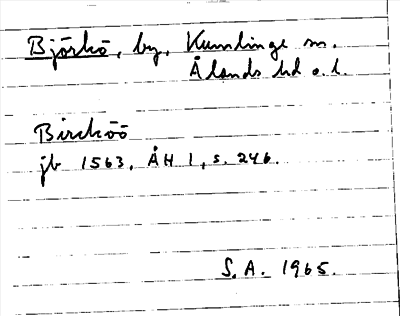 Björkö, by, Kumlinge sn.
Ålands hd o. l.
Birchöö
jb 1563, ÅH 1, s. 246.
S.A. 1965.